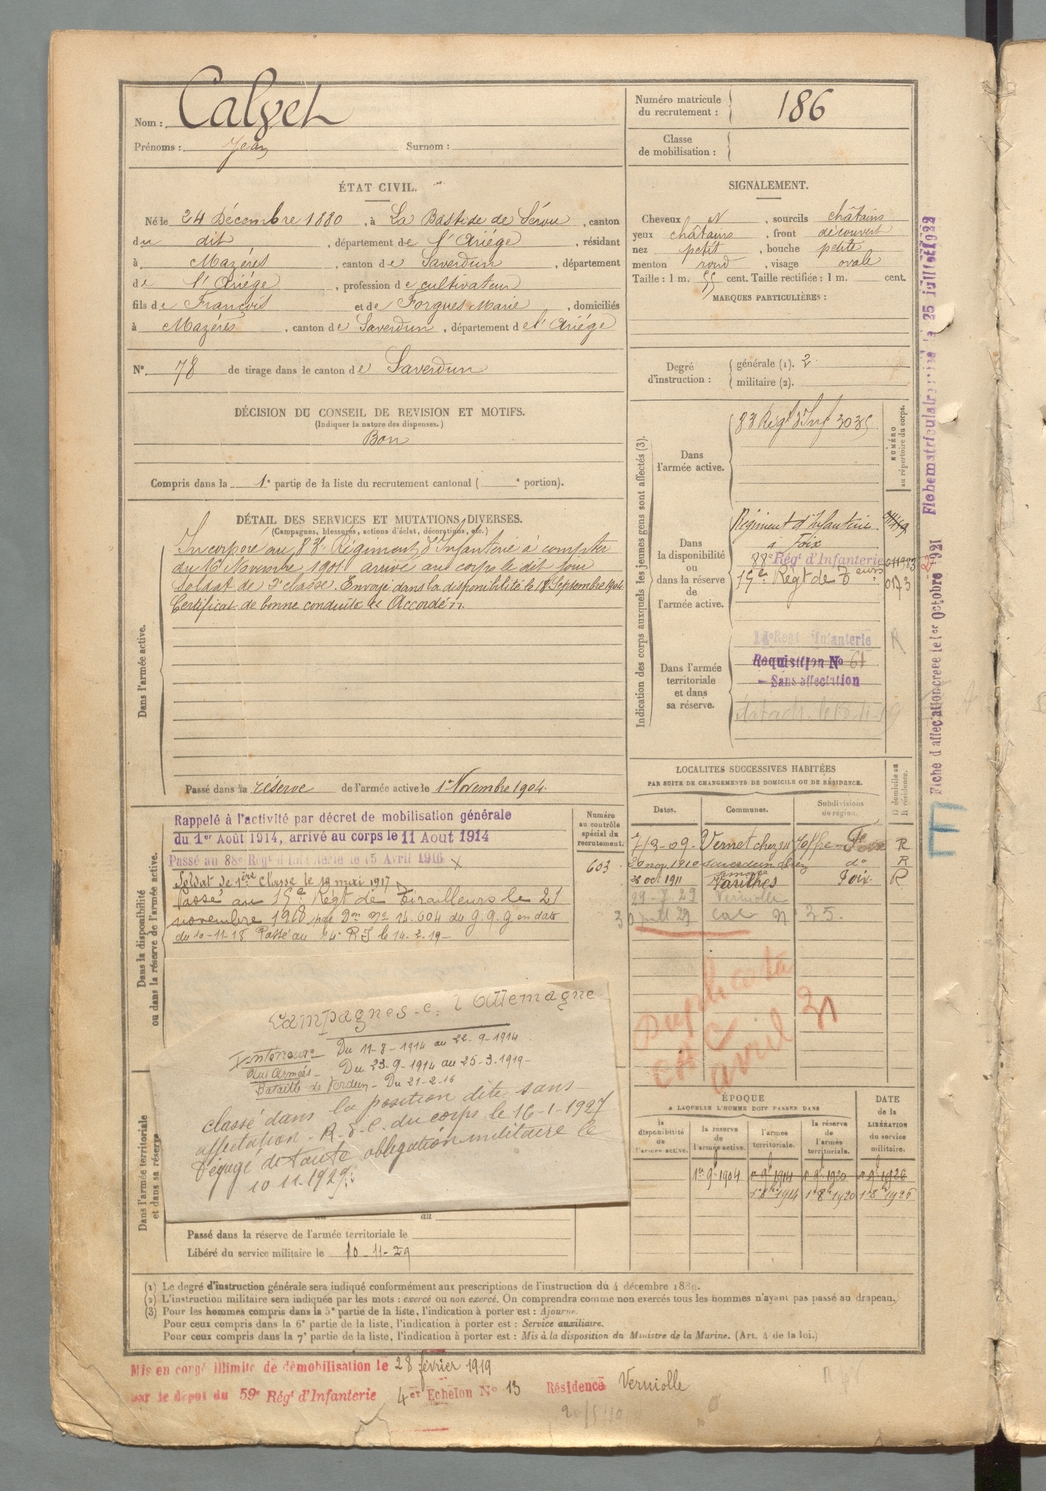 Nom : Calvet
Prénoms : Jean Surnom :
Numéro matricule du recrutement : 186
Classe de mobilisation :
ÉTAT CIVIL.
Né le 24 Décembre 1880, à La Bastide de Sérou, canton
du dit, département de l'Ariège, résidant
à Mazères, canton de Saverdun, département
de l'Ariège, profession de cultivateur
fils de François et de Forgues Marie, domiciliés
à Mazères, canton de Saverdun, département de l'Ariège
N° 78 de tirage dans le canton de Saverdun
SIGNALEMENT.
Cheveux N, sourcils châtains
yeux châtains, front découvert
nez petit, bouche petite
menton rond, visage ovale
Taille : 1 m. 55 cent. Taille rectifiée : 1 m. cent.
MARQUES PARTICULIÈRES :
Degré d'instruction : générale (1). 2
militaire (2).
DÉCISION DU CONSEIL DE REVISION ET MOTIFS.
(Indiquer la nature des dispenses.)
Bon
Compris dans la 1e partie de la liste du recrutement cantonal ( e portion).
DÉTAIL DES SERVICES ET MUTATIONS DIVERSES.
(Campagnes, blessures, actions d'éclat, décorations, etc.)
Dans l'armée active.
Incorporé au 83e Régiment d'Infanterie à compter
du 16 Novembre 1901 arrivé au corps le dit jour
soldat de 2e classe. Envoyé dans la disponibilité le 18 Septembre 1904
Certificat de bonne conduite Accordé.
Passé dans la réserve de l'armée active le 1er Novembre 1904
Indication des corps auxquels les jeunes gens sont affectés (3).
NUMÉRO au répertoire du corps.
Dans l'armée active.
83 Régt d'Inf 3035
Dans la disponibilité ou dans la réserve de l'armée active.
Régiment d'Infanterie
à Foix
88e Rég' d'Infanterie
15e Régt de Teurs 0173
Dans l'armée territoriale et dans sa réserve.
14e Régt Infanterie
Requisition No 61
Sans affectation
Fichematriculaire le 25 juillet 1922
Fiche d'affectation créée le 1er Octobre 1921
Dans la disponibilité ou dans la réserve de l'armée active.
Rappelé à l'activité par décret de mobilisation générale
du 1er Août 1914, arrivé au corps le 11 Août 1914
Passé au 88e Régt d'Infanterie le 15 Avril 1916
Soldat de 1ère Classe le 19 mai 1917
Passé au 15e Régt de Tirailleurs le 21
novembre 1918 14.604 du G.Q.G en date
du 10-11-18 Passé au 14e R.I. le 14-2-19
Numéro au contrôle spécial du recrutement.
603
LOCALITÉS SUCCESSIVES HABITÉES
PAR SUITE DE CHANGEMENTS DE DOMICILE OU DE RÉSIDENCE.
Dates. Communes. Subdivisions de région. D domicile ou R résidence.
7-12-09 Vernet chez Foix R
20 nov 1910 Saverdun do R
28 oct 1911 Varilhes Foix R
29-7-23 Verniolle
Duplicata
en
avril 31
Campagnes c. l'Allemagne
Intérieur Du 11-8-1914 au 22-9-1914
Aux Armées Du 23-9-1914 au 25-3-1919
Bataille de Verdun Du 21-2-16
classé dans la position dite sans
affectation. R.S.C. du corps le 16-1-1927
Dégagé de toute obligation militaire le
10.11.1929.
Dans l'armée territoriale et dans sa réserve
du
Passé dans la réserve de l'armée territoriale le
Libéré du service militaire le 10-11-29
ÉPOQUE
A LAQUELLE L'HOMME DOIT PASSER DANS
la disponibilité de l'armée active.
la réserve de l'armée active.
l'armée territoriale.
la réserve de l'armée territoriale.
DATE de la LIBÉRATION du service militaire.
1er 9bre 1904 1914 1920 1926
1er 8bre 1914 1er 8bre 1920 1er 8bre 1926
(1) Le degré d'instruction générale sera indiqué conformément aux prescriptions de l'instruction du 4 décembre 1889.
(2) L'instruction militaire sera indiquée par les mots : exercé ou non exercé. On comprendra comme non exercés tous les hommes n'ayant pas passé au drapeau.
(3) Pour les hommes compris dans la 5e partie de la liste, l'indication à porter est : Ajourné.
Pour ceux compris dans la 6e partie de la liste, l'indication à porter est : Service auxiliaire.
Pour ceux compris dans la 7e partie de la liste, l'indication à porter est : Mis à la disposition du Ministre de la Marine. (Art. 4 de la loi.)
Mis en congé illimité de démobilisation le 28 février 1919
par le dépôt du 59e Régt d'Infanterie 4er Echelon N° 13 Résidence Verniolle